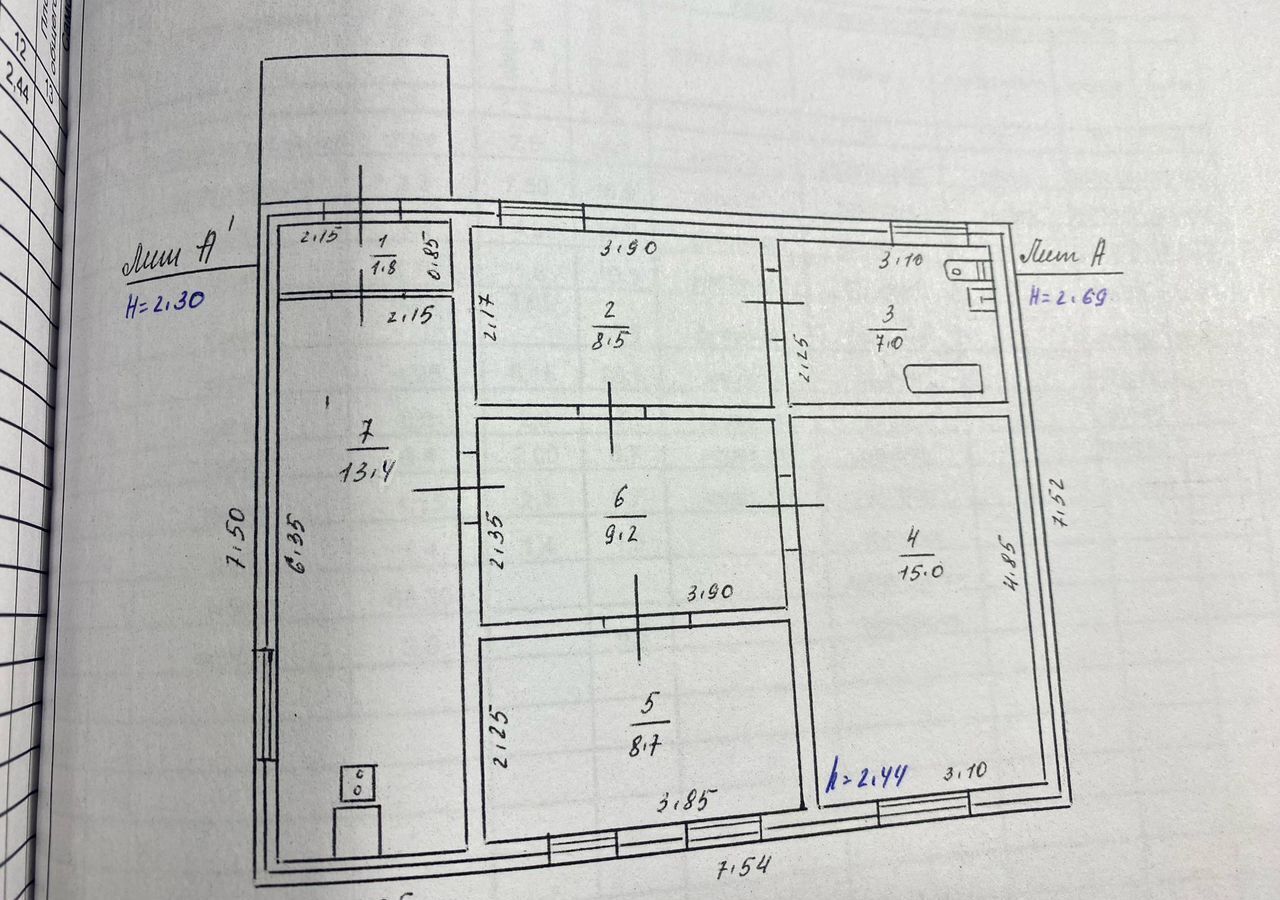 12
2,44
Лит А'
H=2.30
2.15
1
1.8
0.85
2.15
3.90
2.17
2
8.5
3.10
3
7.0
2.25
Лит А
H=2.69
7
13.4
7.50
6.35
6
9.2
2.35
3.90
4
15.0
4.85
7.52
5
8.7
2.25
3.85
h=2.44
3.10
7.54